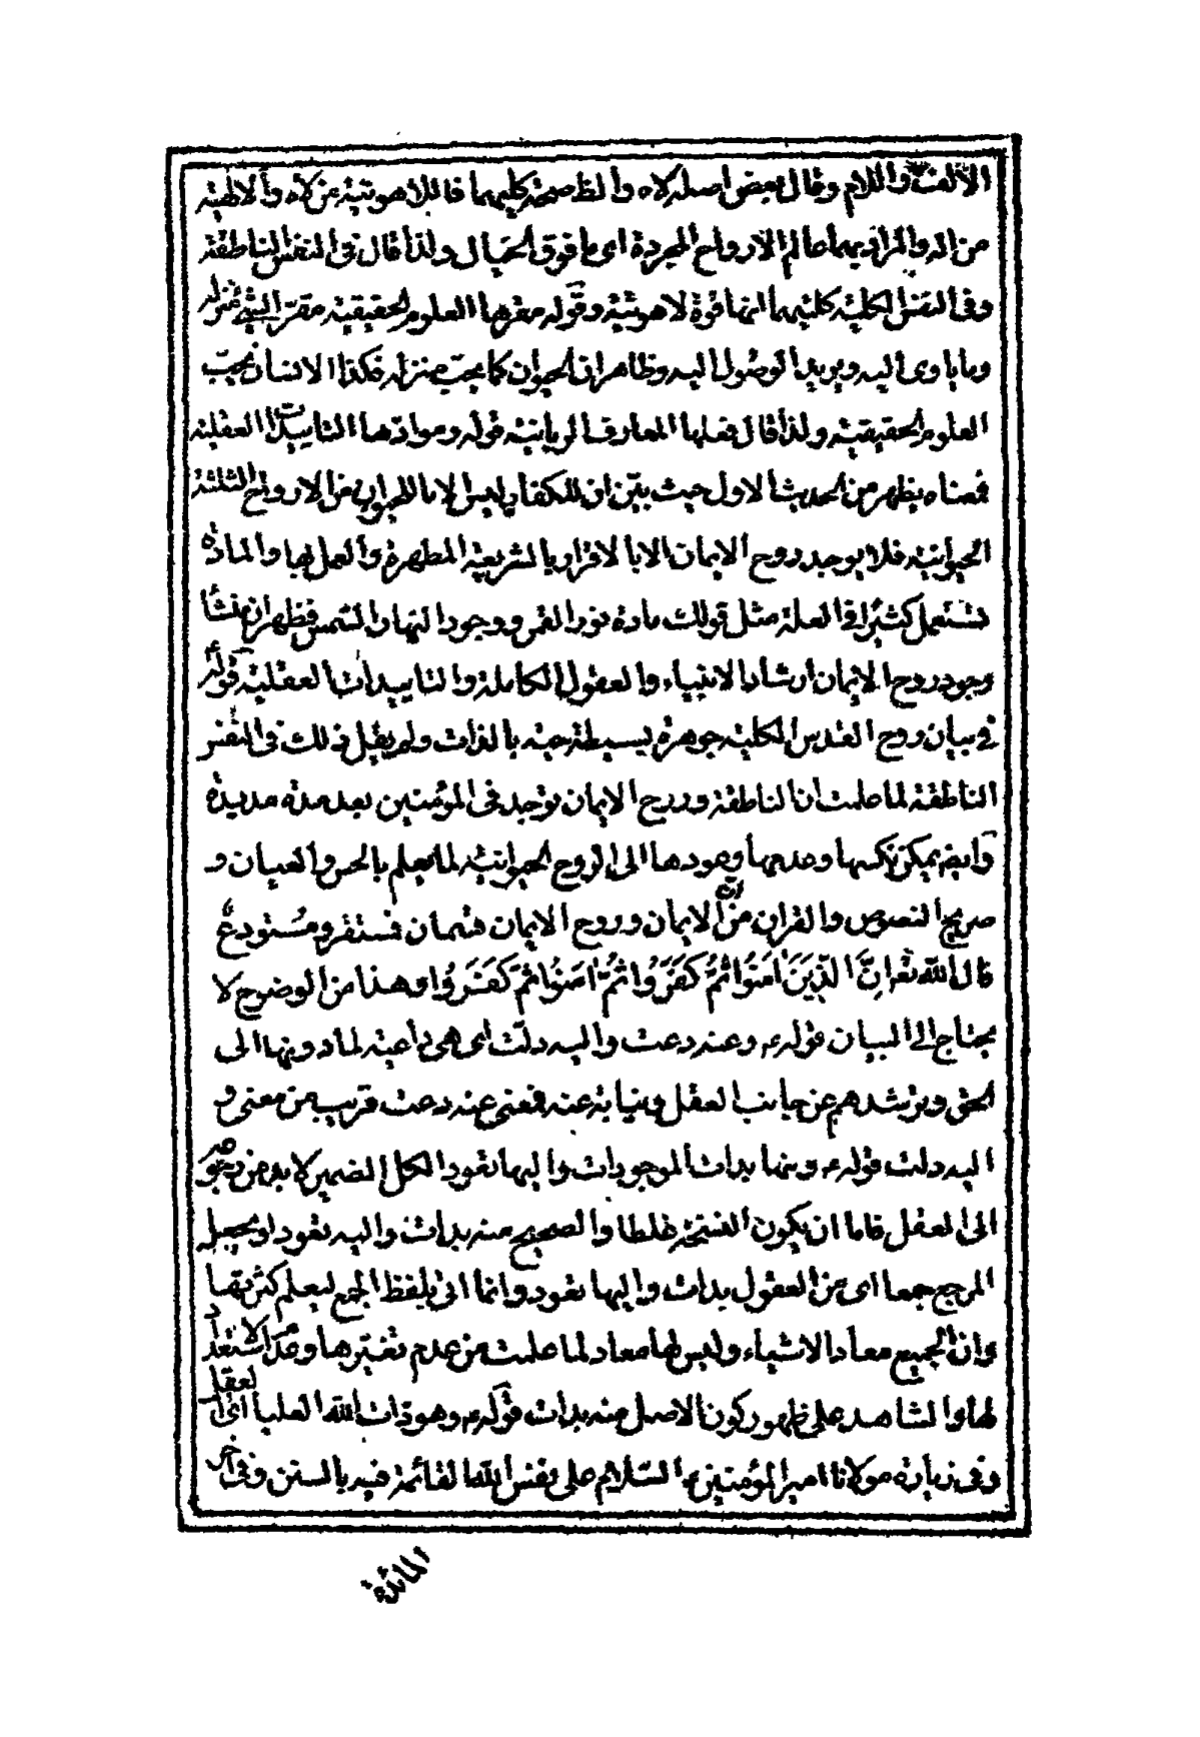 الالف واللام وقال بعض اصله لاه والظ صحة كليهما فاللاهوتية من لاه والالهية
من اله والمراد بهما عالم الارواح المجردة اى ما فوق الخيال ولذا قال فى النفس الناطقة
وفى النفس الكلية كليهما انها قوة لاهوتية وقوله مقرها العلوم الحقيقية مقر الشئ منزله
وما ياوى اليه ويريد الوصول اليه وظاهر ان الحيوان كما يحب منزله فكذا الانسان يحب
العلوم الحقيقية ولذا قال فعلها المعارف الربانية قوله وموادها التاييدات العقلية
فمعناه يظهر من الحديث الاول حيث بين ان للكفار ليس الا ما للحيوان من الارواح الثلثة
الحيوانية فلا يوجد روح الايمان الا بالاقرار بالشريعة المطهرة والعمل بها والمادة
تستعمل كثيرا فى العلة مثل قولك مادة نور القمر ووجود النهار الشمس فظهر ان منشأ
وجود روح الايمان ارشاد الانبياء والعقول الكاملة والتاييدات العقلية قوله
فى بيان روح القدس الكلية جوهرة بسيطة حية بالذات ولم يقل ذلك فى النفس
الناطقة لما علمت ان الناطقة وروح الايمان توجد فى المؤمنين بعد مدة مديدة
وايضا يمكن نكسها وعدمها وعودها الى الروح الحيوانية لما يعلم بالحس والعيان و
صريح النصوص والقران من ان الايمان وروح الايمان قسمان فمستقر ومستودع
قال الله تعم اِنَّ الَّذِينَ اٰمَنُوا ثُمَّ كَفَرُوا ثُمَّ اٰمَنُوا ثُمَّ كَفَرُوا وهذا من الوضوح لا
يحتاج الى البيان قوله ع وعنه دعت واليه دلت اى هى داعية لما دونها الى
الحق ويرشدهم عن جانب العقل ونيابة عنه فمعنى عنه دعت قريب من معنى و
اليه دلت قوله ع ومنها بدات الموجودات واليها تعود الكل الضمير لا بد من رجوعه
الى العقل فاما ان يكون النسخة غلطا والصحيح منه بدات واليه تعود او يجعل
المرجع جمعا اى من العقول بدات واليها تعود وانما اتى بلفظ الجمع ليعلم كثرتها
وان الجميع معاد الاشياء وليس لها معاد لما علمت من عدم تغيرها وعدم الاستعداد
لها والشاهد على ظهور كون الاصل منه بدات قوله ع وهو ذات الله العليا اى العقل
وفى زيارة مولانا امير المؤمنين ع السلام على نفس الله القائمة فيه بالسنن وفى اخر
المائدة